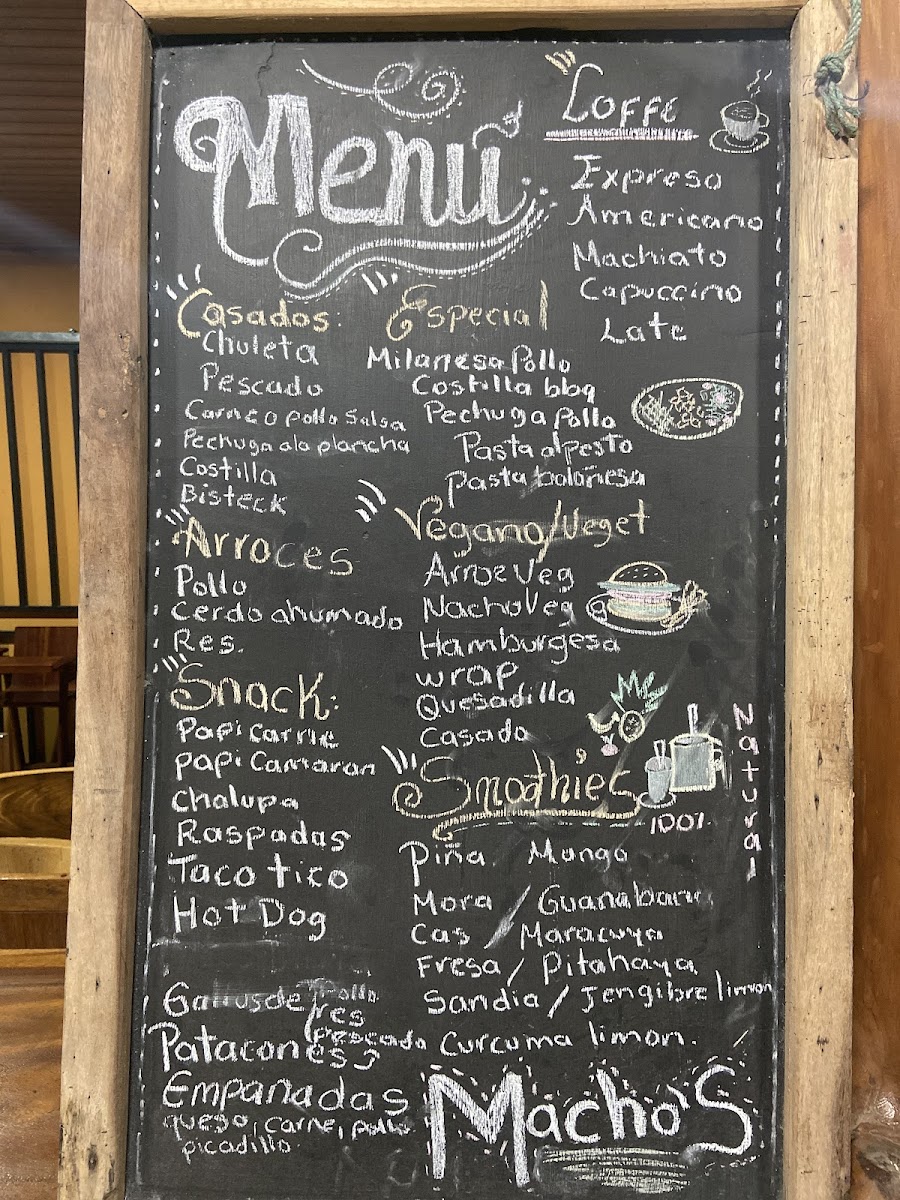 Menú
Coffe
Expreso
Americano
Machiato
Capuccino
Late
Casados:
Chuleta
Pescado
Carne o pollo Salsa
Pechuga a la plancha
Costilla
Bisteck
Especial
Milanesa Pollo
Costilla bbq
Pechuga Pollo
Pasta al pesto
Pasta boloñesa
Arroces
Pollo
Cerdo ahumado
Res.
Vegano/Veget
Arroz Veg
Nacho Veg
Hamburgesa
wrap
Quesadilla
Casado
Snack:
Papi carne
papi Camaron
chalupa
Raspadas
Taco tico
Hot Dog
Smoothie's
100%
Natural
Piña Mango
Mora / Guanabana
Cas / Maracuya
Fresa / Pitahaya
Sandia / Jengibre limon
Curcuma limon.
Gallos de Pollo
res
Pescado
Patacones
Empanadas
queso, carne, pollo
picadillo.
Macho'S